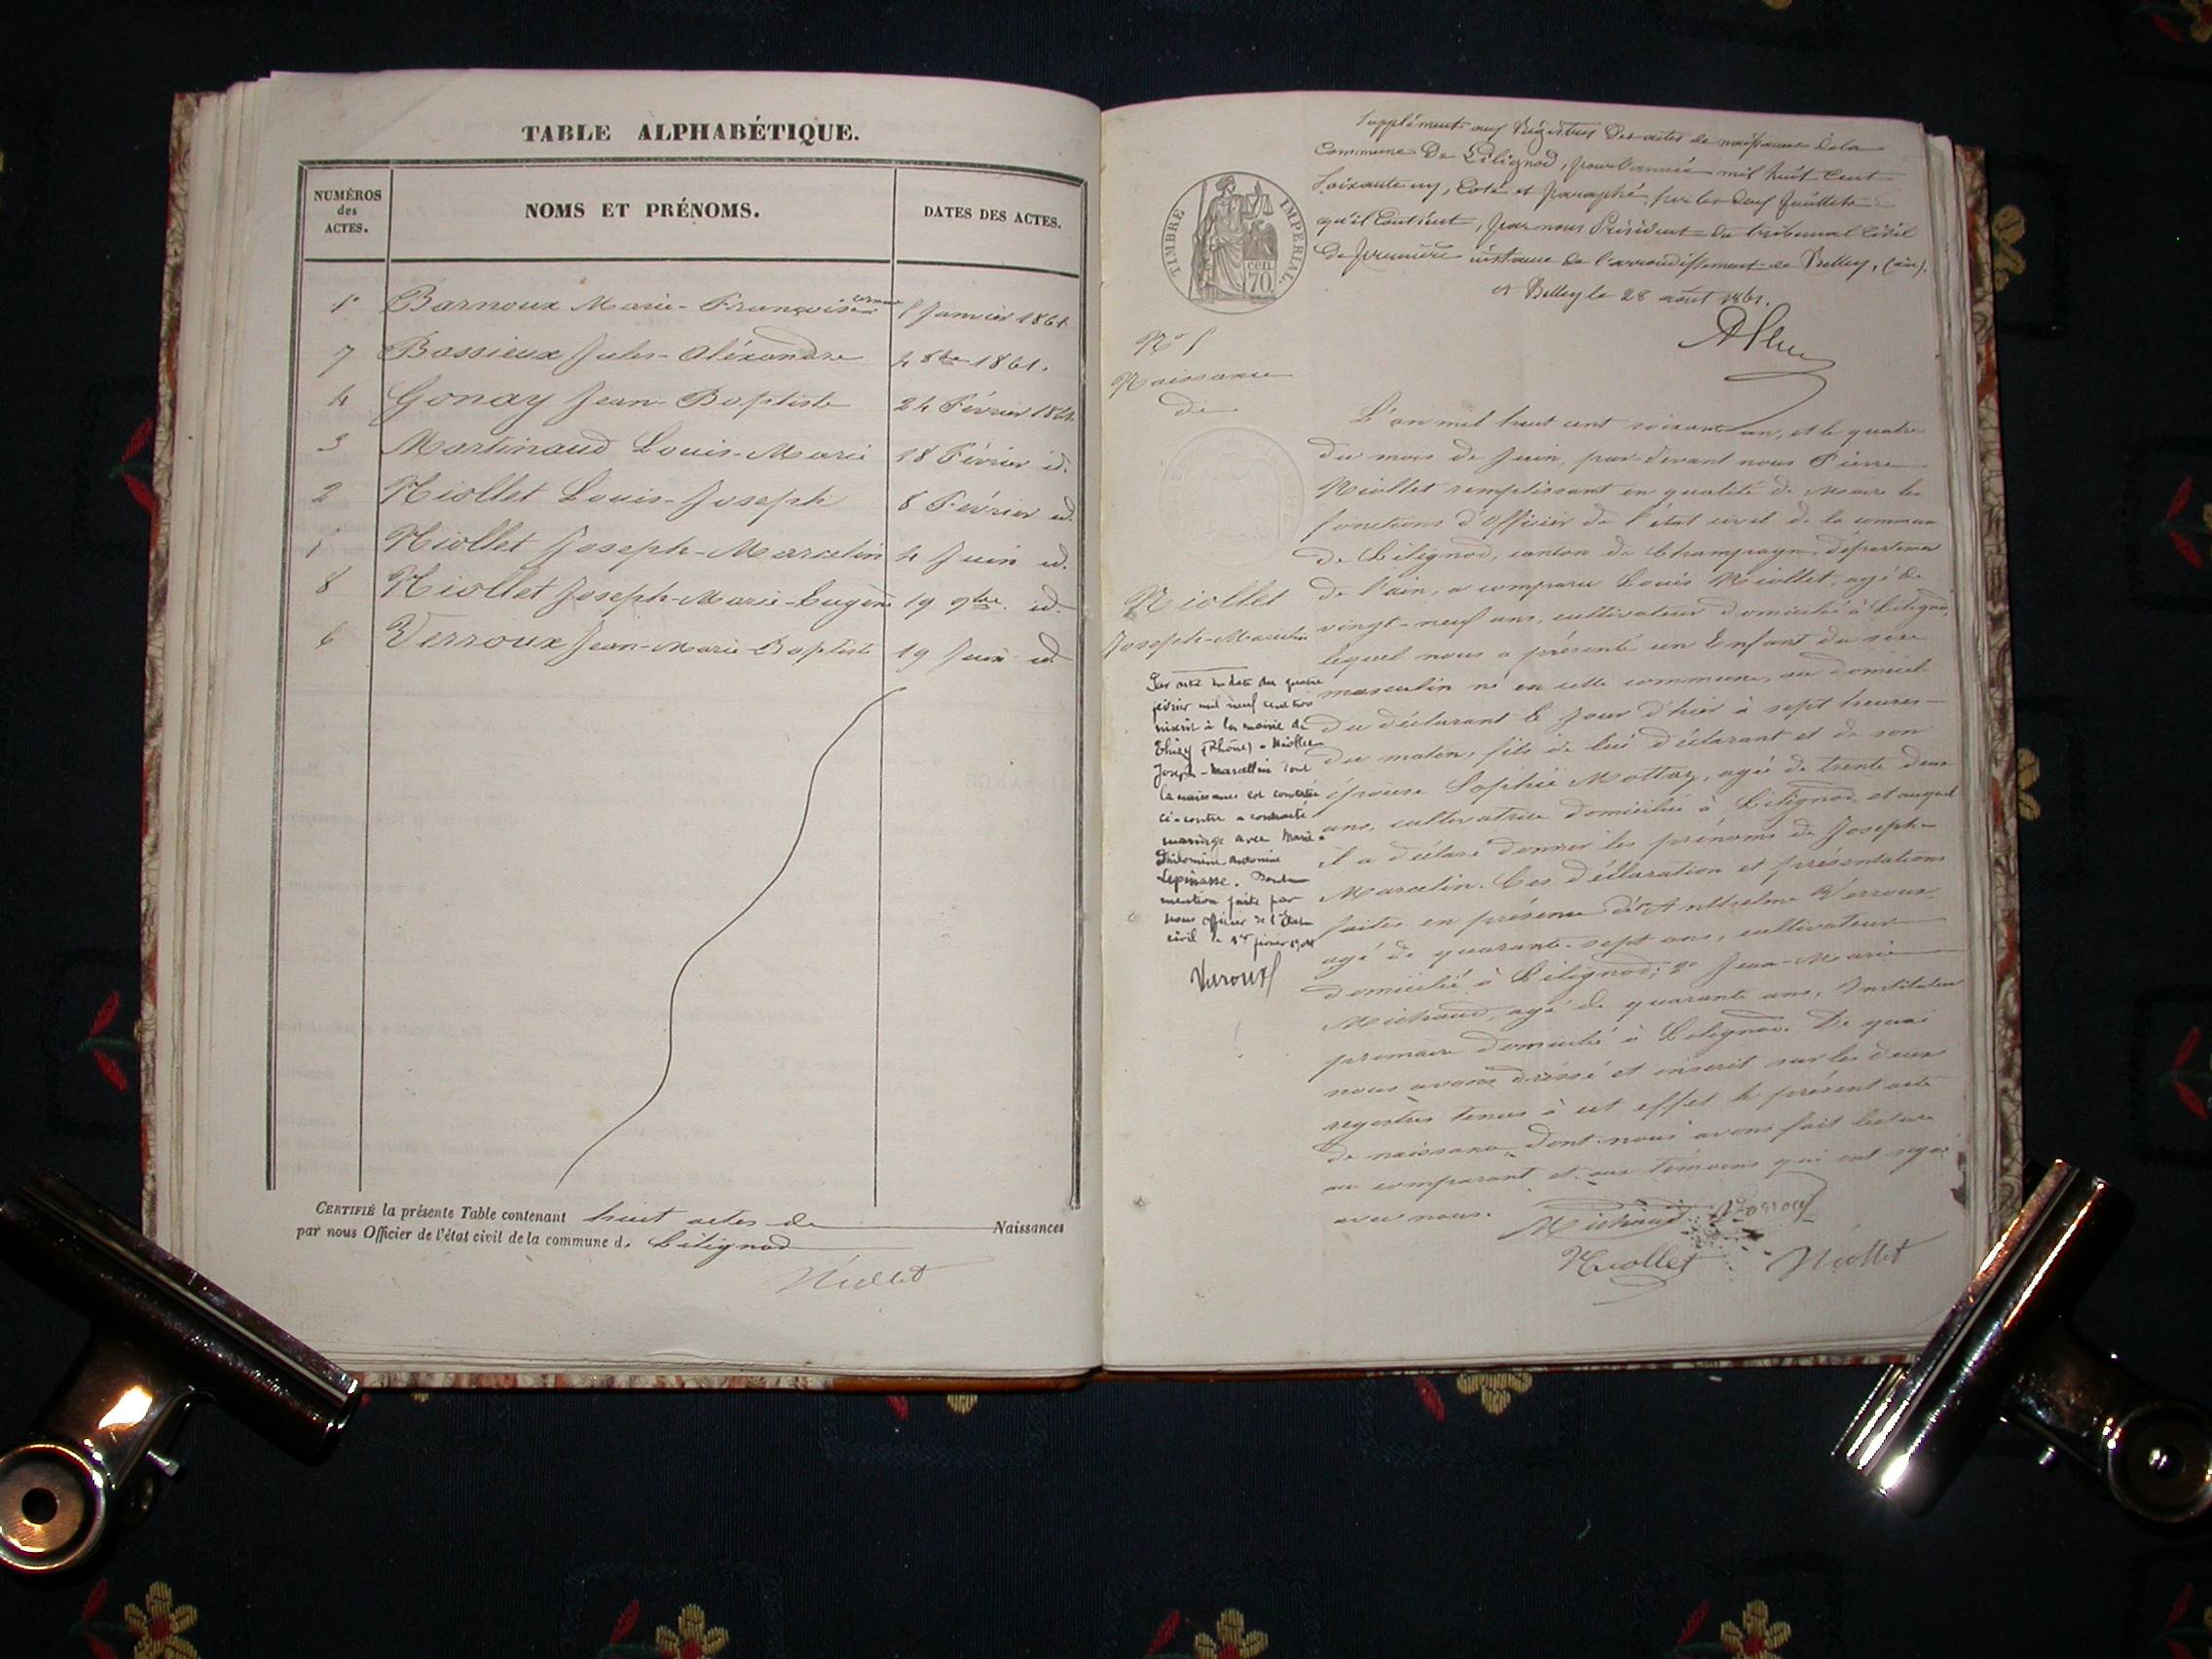 TABLE ALPHABÉTIQUE.
NUMÉROS des ACTES.
NOMS ET PRÉNOMS.
DATES DES ACTES.
1 Barnoux Marie-Françoise Janvier 1861
7 Bassieux Jules-Aléxandre 4 8bre 1861.
4 Gonay Jean-Baptiste 24 Février 1861
3 Martinaud Louis-Marie 18 Février id.
2 Niollet Louis-Joseph 8 Février id.
Niollet Joseph-Marcelin 4 Juin id.
8 Niollet Joseph-Marie-Eugène 19 9bre. id.
6 Verroux Jean-Marie-Baptiste 19 Juin id
CERTIFIÉ la présente Table contenant huit actes de Naissances
par nous Officier de l'état civil de la commune de Lilignod
Niollet
Supplément aux Régistres des actes de naissance de la
Commune De Lilignod, pour l'année mil huit cent
Soixante un, Coté et paraphé, sur les deux feuillets
qu'il Contient, par nous Président du tribunal Civil
de première instance de l'arrondissement de Belley, (ain).
à Belley le 28 août 1861.
TIMBRE IMPERIAL.
70 cen
Naissance
de
Niollet
Joseph-Marcelin
L'an mil huit cent soixante un, et le quatre
du mois de Juin, par-devant nous Pierre
Niollet remplissant en qualité de Maire les
fonctions d'officier de l'état civil de la commune
de Lilignod, canton de Champagne, département
de l'ain, a comparu Louis Niollet, agé de
vingt-neuf ans, cultivateur domicilié à Lilignod,
lequel nous a présenté un Enfant du sexe
masculin né en cette commune, au domicile
du déclarant le jour d'hier à sept heures
du matin, fils de lui déclarant et de son
épouse Sophie Mottaz, agée de trente deux
ans, cultivatrice domiciliée à Lilignod et auquel
il a déclaré donner les prénoms de Joseph-
Marcelin. Ces déclaration et présentations
faites en présence de Anthelme Verroux
agé de quarante-sept ans, cultivateur
domicilié à Lilignod; 2° Jean-Marie
Michaud, agé de quarante ans, Instituteur
primaire domicilié à Lilignod. De quoi
nous avons dréssé et inscrit sur les deux
registres tenus à cet effet le présent acte
de naissance, dont nous avons fait lecture
au comparant et aux témoins qui ont signé
avec nous.
Michaud Verroux
Niollet Niollet
Par acte en date du quatre
février mil neuf cent
inscrit à la mairie de
Thizy (Rhône) Niollet
Joseph-Marcellin dont
la naissance est constatée
ci-contre a contracté
mariage avec Marie-
Philomène Antonine
Lepinasse.
mention faite par
nous officier de l'Etat
civil le février
Veroux